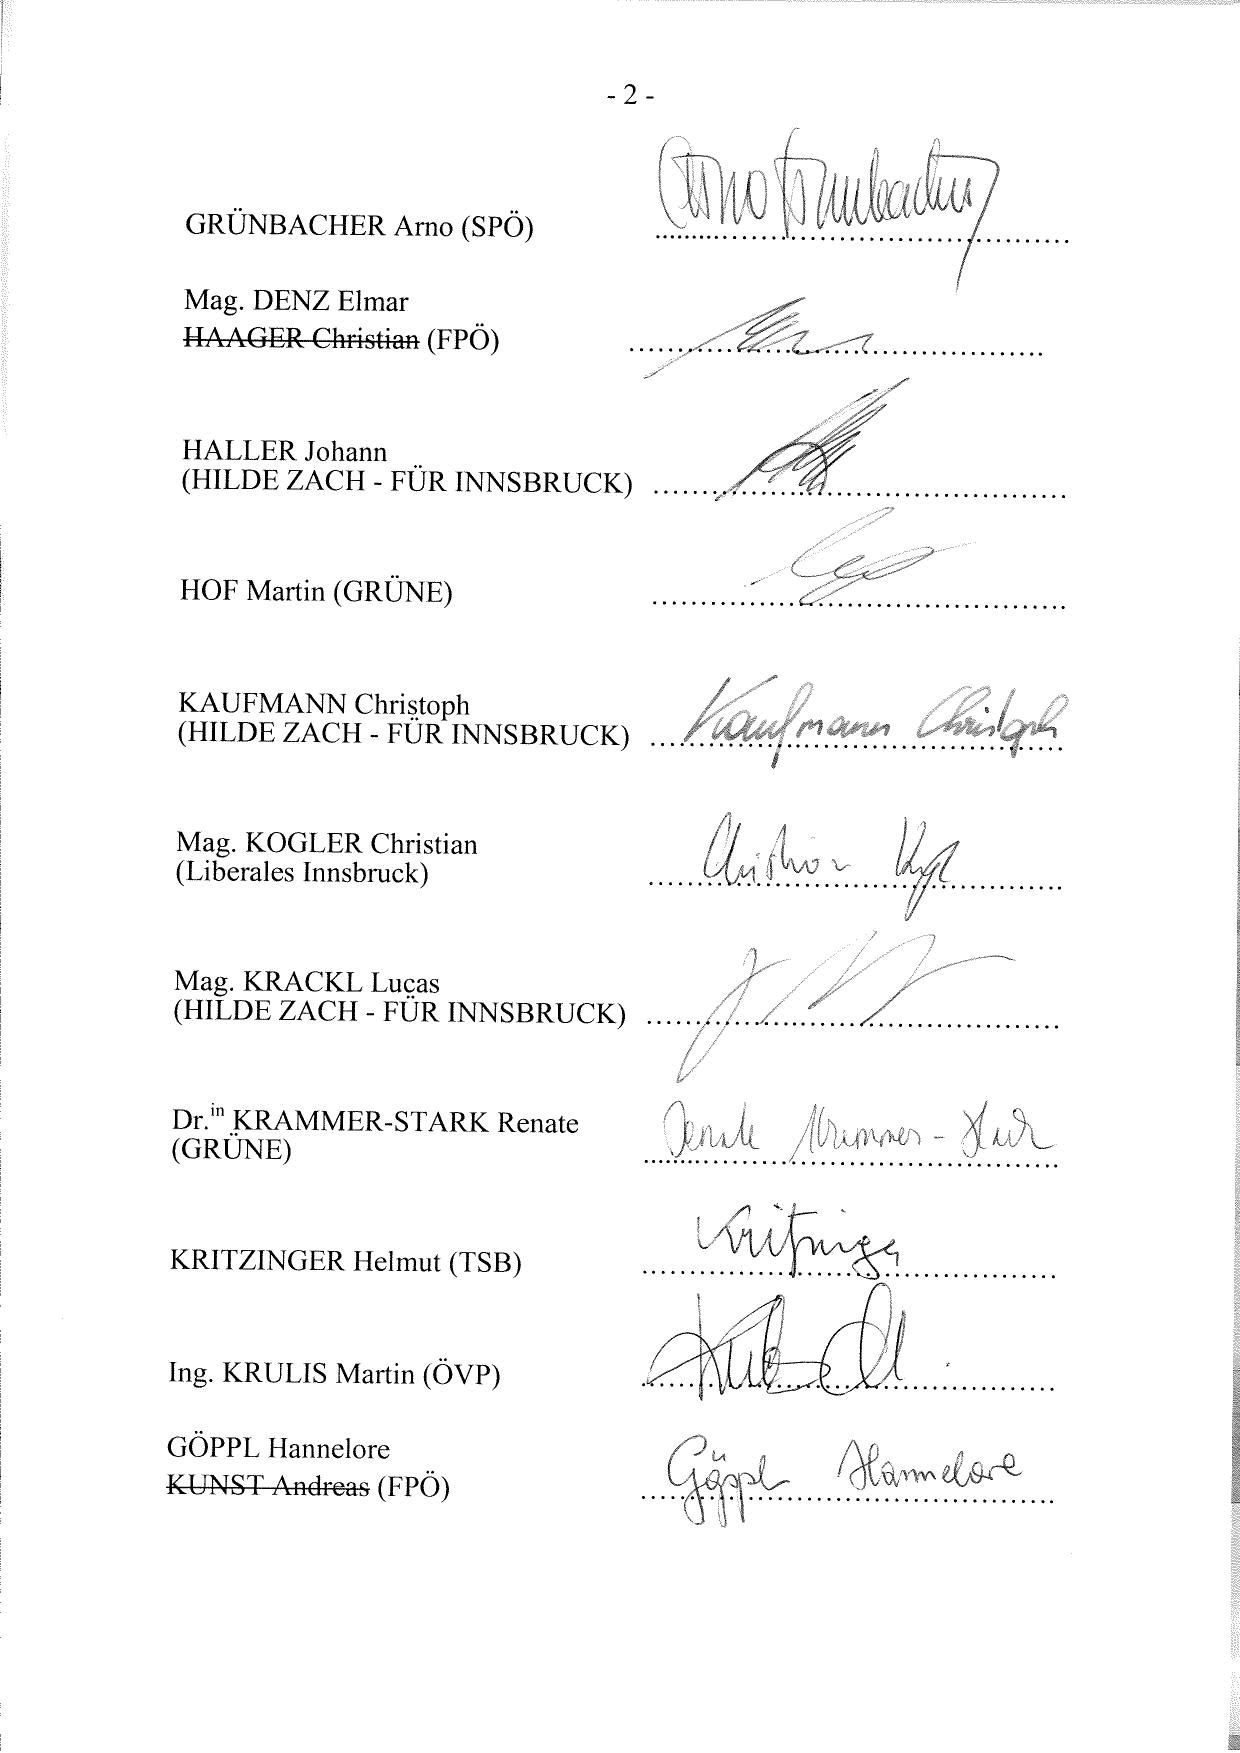 - 2 -
GRÜNBACHER Arno (SPÖ)
Arno Grünbacher
Mag. DENZ Elmar
HAAGER Christian (FPÖ)
HALLER Johann
(HILDE ZACH - FÜR INNSBRUCK)
HOF Martin (GRÜNE)
KAUFMANN Christoph
(HILDE ZACH - FÜR INNSBRUCK)
Kaufmann Christoph
Mag. KOGLER Christian
(Liberales Innsbruck)
Christian
Mag. KRACKL Lucas
(HILDE ZACH - FÜR INNSBRUCK)
Dr.in KRAMMER-STARK Renate
(GRÜNE)
Renate Krammer-Stark
KRITZINGER Helmut (TSB)
Kritzinger
Ing. KRULIS Martin (ÖVP)
GÖPPL Hannelore
KUNST Andreas (FPÖ)
Göppl Hannelore